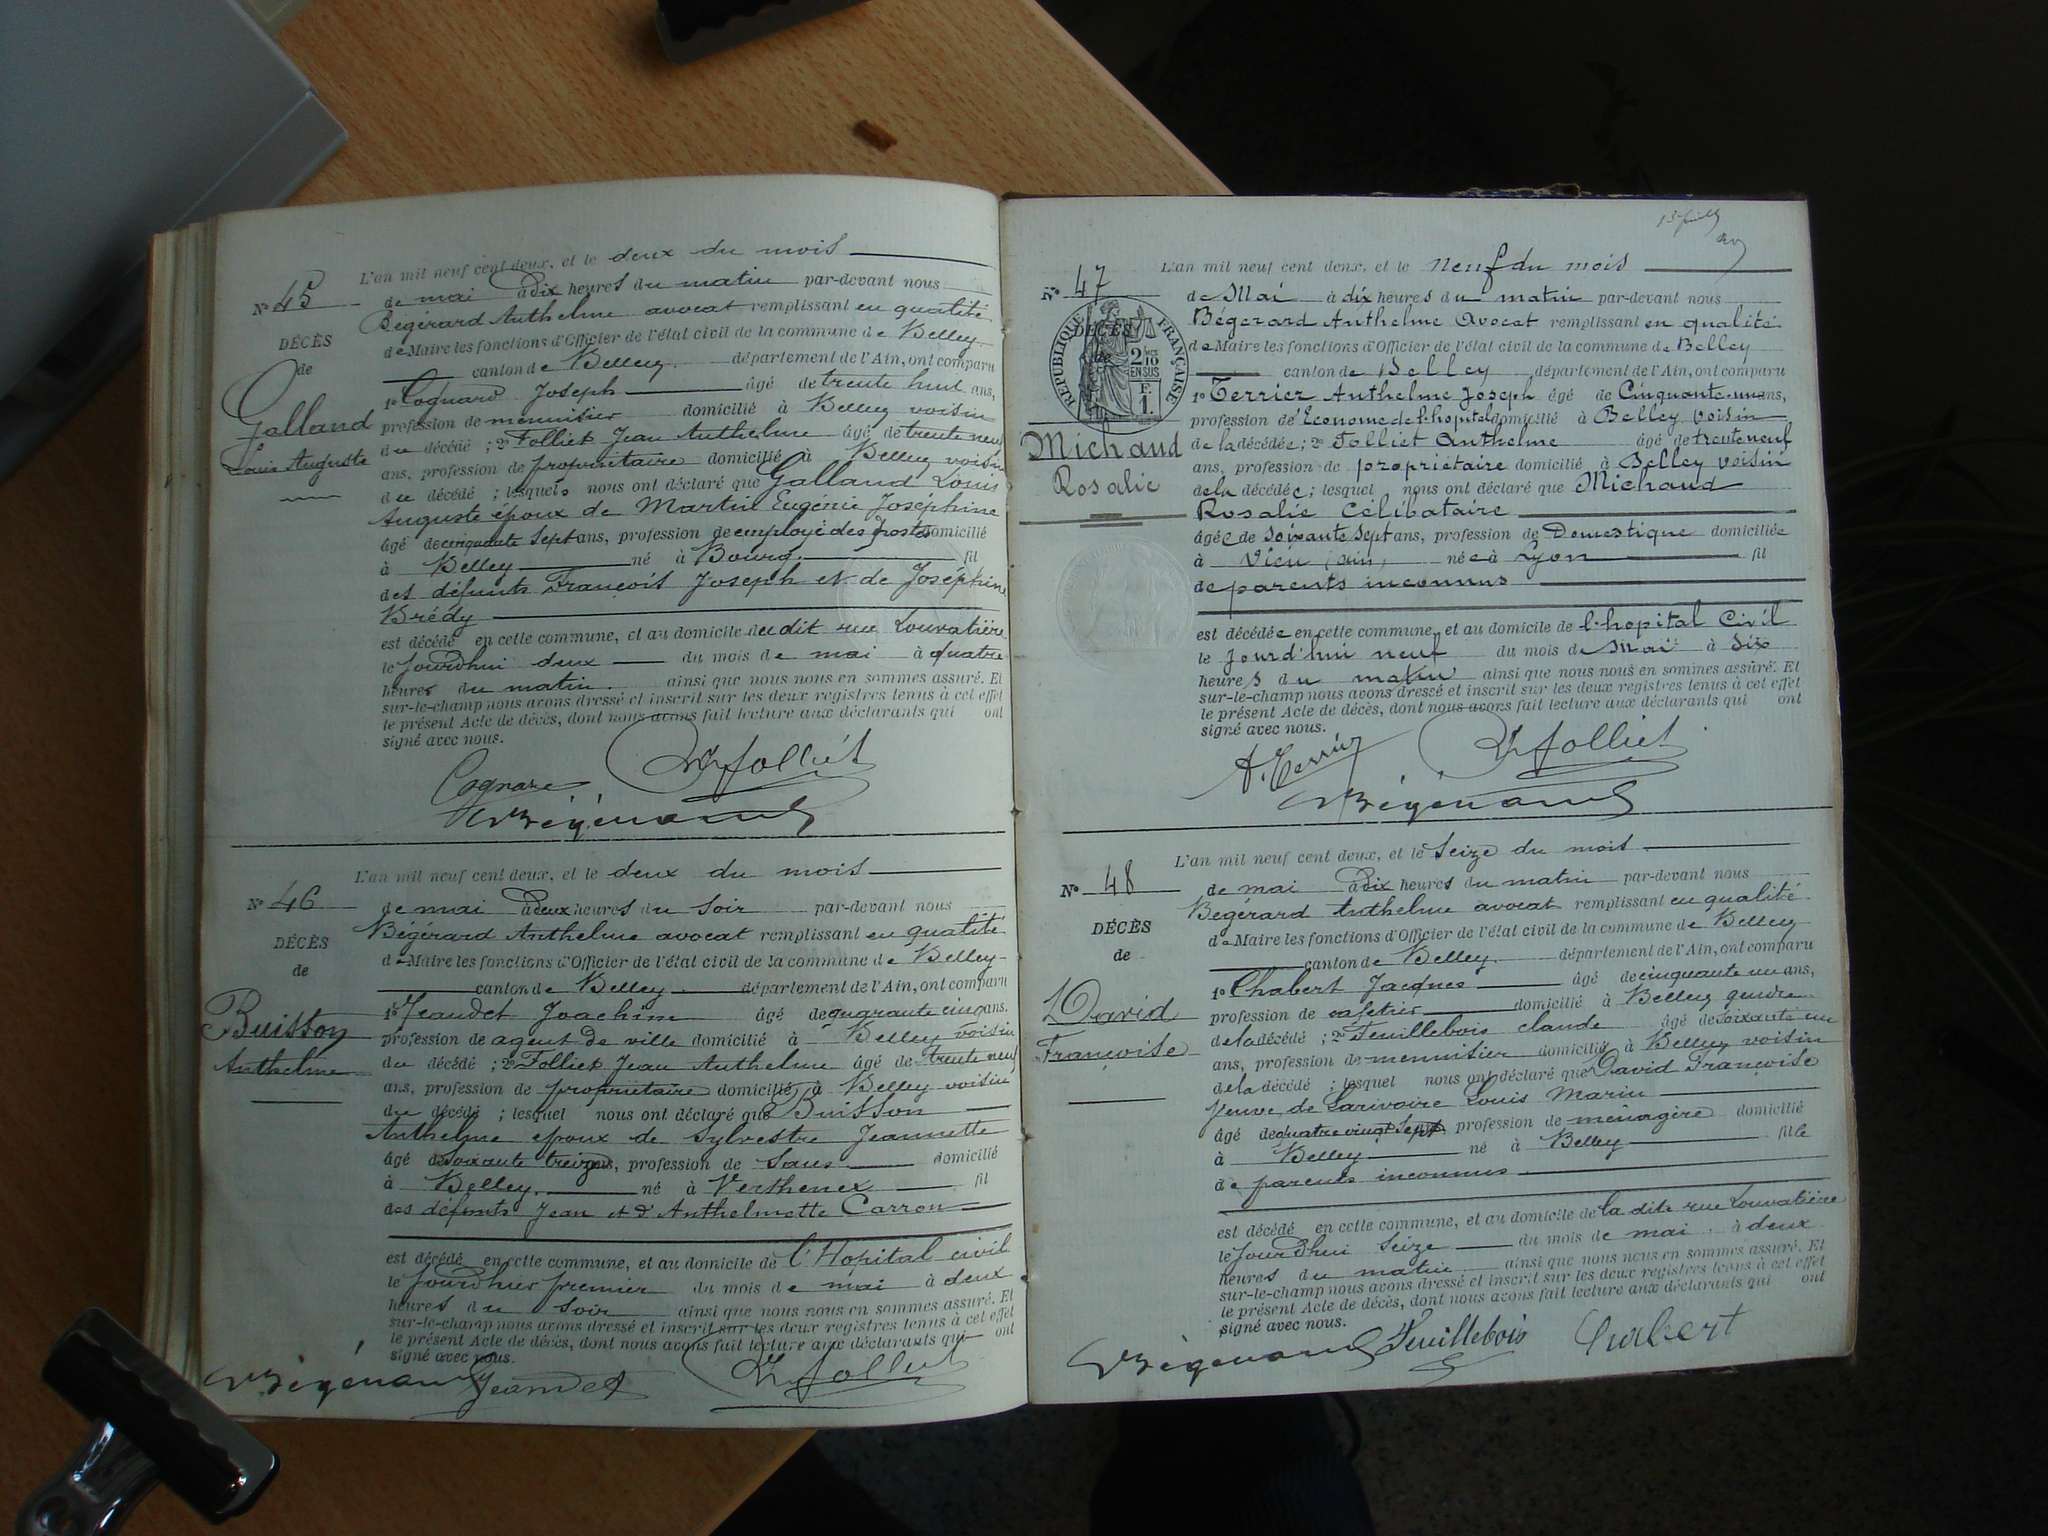 L'an mil neuf cent deux, et le deux du mois
N° 45
de mai à dix heures du matin par-devant nous
Bégérard Anthelme avocat remplissant en qualité
DÉCÈS
de Maire les fonctions d'Officier de l'état civil de la commune de Belley
de
canton de Belley département de l'Ain, ont comparu
1° Cognard Joseph âgé de trente huit ans,
Galland
profession de menuisier domicilié à Belley voisin
Louis Auguste
du décédé ; 2° Folliet Jean Anthelme âgé de trente neuf
ans, profession de propriétaire domicilié à Belley voisin
du décédé ; lesquels nous ont déclaré que Galland Louis
Auguste époux de Martin Eugénie Joséphine
âgé de cinquante sept ans, profession de employé des Postes domicilié
à Belley né à Bourg fil
des défunts François Joseph et de Joséphine
Brédy
est décédé en cette commune, et au domicile du dit rue Louvatière
le jourdhui deux du mois de mai à quatre
heures du matin ainsi que nous nous en sommes assuré. Et
sur-le-champ nous avons dressé et inscrit sur les deux registres tenus à cet effet
le présent Acte de décès, dont nous avons fait lecture aux déclarants qui ont
signé avec nous.
Cognard Folliet
Bégérard
L'an mil neuf cent deux, et le deux du mois
N° 46
de mai à deux heures du soir par-devant nous
Bégérard Anthelme avocat remplissant en qualité
DÉCÈS
de Maire les fonctions d'Officier de l'état civil de la commune de Belley
de
canton de Belley département de l'Ain, ont comparu
Buisson
1° Jeandet Joachim âgé de quarante cinq ans,
profession de agent de ville domicilié à Belley voisin
Anthelme
du décédé ; 2° Folliet Jean Anthelme âgé de trente neuf
ans, profession de propriétaire domicilié à Belley voisin
du décédé ; lesquel nous ont déclaré que Buisson
Anthelme époux de Sylvestre Jeannette
âgé de soixante treize ans, profession de Sans domicilié
à Belley né à Verthenex fil
des défunts Jean et d'Anthelmette Carron
est décédé en cette commune, et au domicile de l'Hopital civil
le jourdhier premier du mois de mai à deux
heures du soir ainsi que nous nous en sommes assuré. Et
sur-le-champ nous avons dressé et inscrit sur les deux registres tenus à cet effet
le présent Acte de décès, dont nous avons fait lecture aux déclarants qui ont
signé avec nous.
Bégérard Jeandet Folliet
L'an mil neuf cent deux, et le neuf du mois
N° 47
de Mai à dix heures du matin par-devant nous
Bégerard Anthelme Avocat remplissant en qualité
RÉPUBLIQUE FRANÇAISE
DÉCÈS
de
2/10 EN SUS
1 F.
de Maire les fonctions d'Officier de l'état civil de la commune de Belley
canton de Belley département de l'Ain, ont comparu
1° Terrier Anthelme Joseph âgé de Cinquante-un ans,
profession de Econome de l'hopital domicilié à Belley voisin
Michaud
de la décédée ; 2° Folliet Anthelme âgé de trente neuf
ans, profession de propriétaire domicilié à Belley voisin
Rosalie
de la décédée ; lesquel nous ont déclaré que Michaud
Rosalie célibataire
âgée de soixante sept ans, profession de Domestique domiciliée
à Vieu (ain) née à Lyon fil
de parents inconnus
est décédée en cette commune, et au domicile de l'hopital Civil
le Jourd'hui neuf du mois de Mai à six
heures du matin ainsi que nous nous en sommes assuré. Et
sur-le-champ nous avons dressé et inscrit sur les deux registres tenus à cet effet
le présent Acte de décès, dont nous avons fait lecture aux déclarants qui ont
signé avec nous.
A. Terrier Folliet
Bégérard
L'an mil neuf cent deux, et le Seize du mois
N° 48
de mai à dix heures du matin par-devant nous
Bégérard Anthelme avocat remplissant en qualité
DÉCÈS
de Maire les fonctions d'Officier de l'état civil de la commune de Belley
de
canton de Belley département de l'Ain, ont comparu
1° Chabert Jacques âgé de cinquante un ans,
David
profession de cafetier domicilié à Belley gendre
de la décédé ; 2° Feuillebois claude âgé de soixante un
Françoise
ans, profession de menuisier domicilié à Belley voisin
de la décédé ; lesquel nous ont déclaré que David Françoise
Veuve de Larivoire Louis Marin
âgé de quatre vingt sept profession de ménagère domicilié
à Belley né à Belley fille
de parents inconnus
est décédé en cette commune, et au domicile de la dite rue Louvatière
le Jourdhui Seize du mois de mai à deux
heures du matin ainsi que nous nous en sommes assuré. Et
sur-le-champ nous avons dressé et inscrit sur les deux registres tenus à cet effet
le présent Acte de décès, dont nous avons fait lecture aux déclarants qui ont
signé avec nous.
Bégérard Feuillebois Chabert